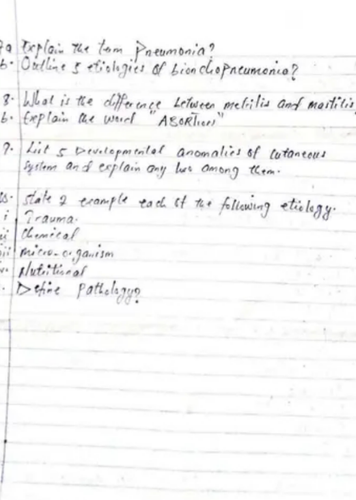 7a Explain the term Pneumonia?
b. Outline 5 etiologies of bronchopneumonia?
8. What is the difference between metritis and mastitis
b. Explain the word "ABORTION"
9. List 5 Developmental anomalies of cutaneous
system and explain any two among them.
10. State 2 example each of the following etiology.
i Trauma.
ii Chemical
iii micro-organism
iv. Nutritional
v. Define Pathology?